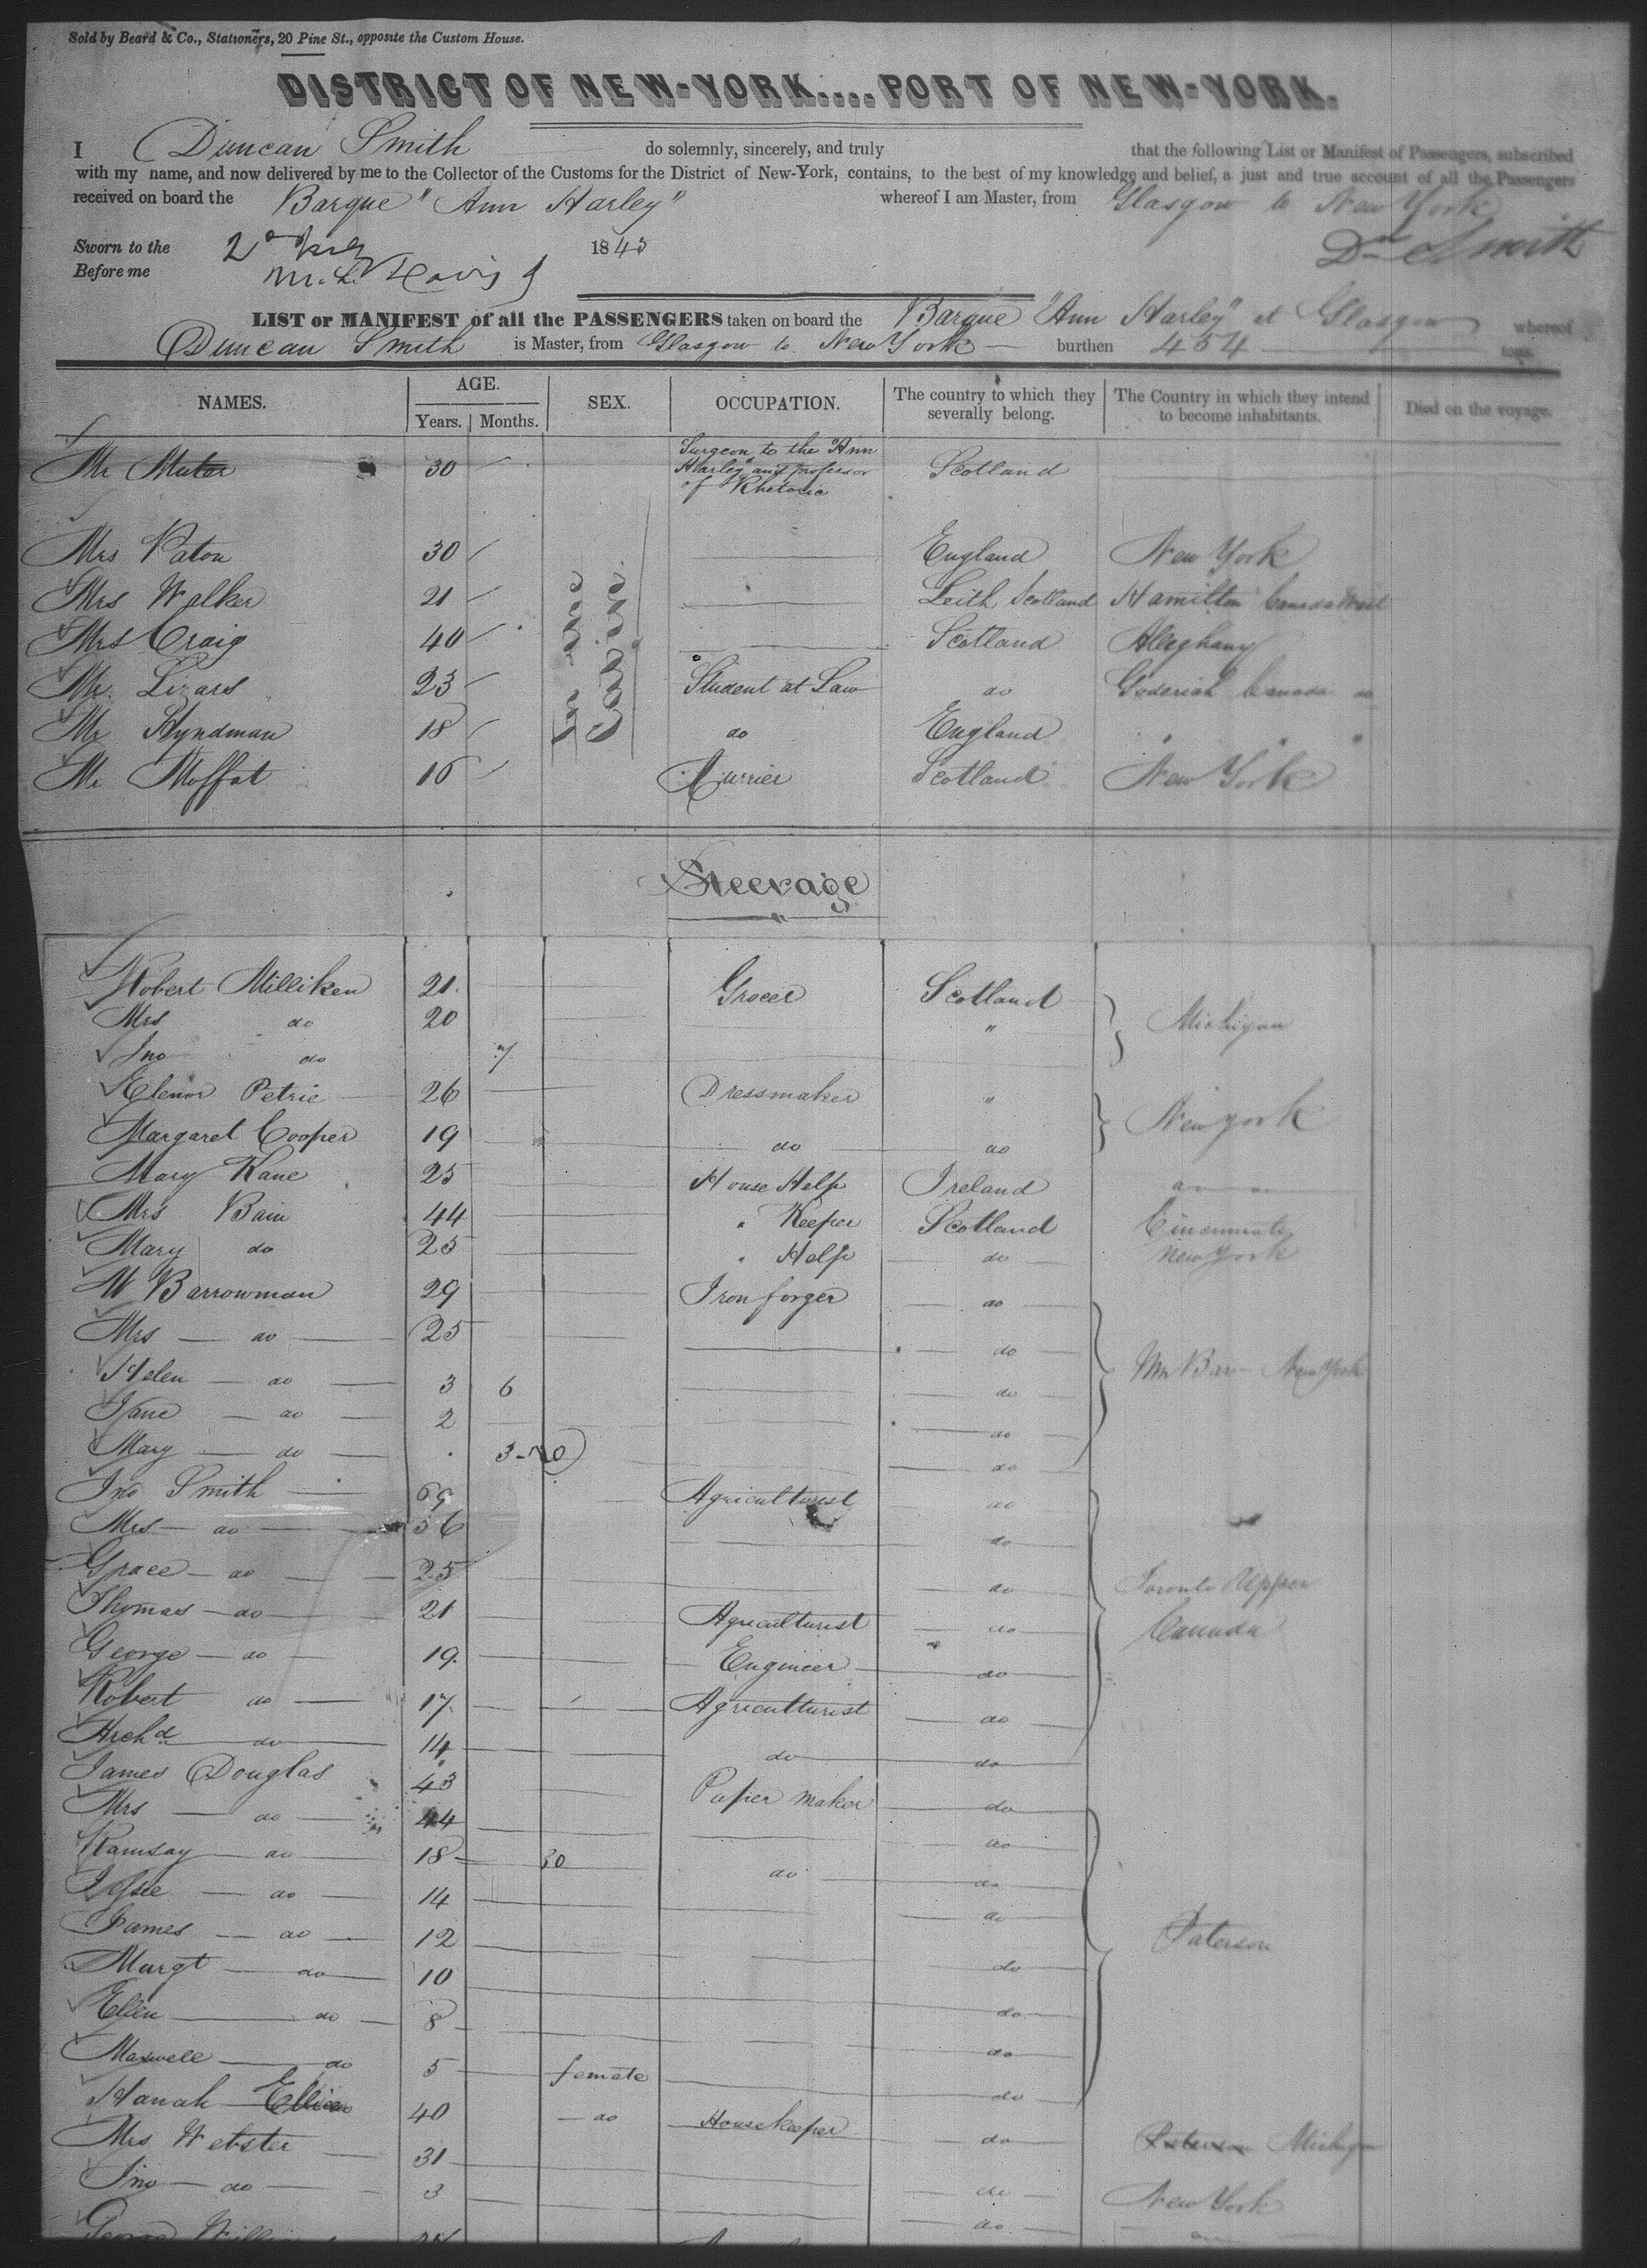 Sold by Beard & Co., Stationers, 20 Pine St., opposite the Custom House.
DISTRICT OF NEW-YORK....PORT OF NEW-YORK.
I Duncan Smith do solemnly, sincerely, and truly that the following List or Manifest of Passengers, subscribed
with my name, and now delivered by me to the Collector of the Customs for the District of New-York, contains, to the best of my knowledge and belief, a just and true account of all the Passengers
received on board the Barque "Ann Harley" whereof I am Master, from Glasgow to New York
Dn Smith
Sworn to the 2 1843
Before me
LIST or MANIFEST of all the PASSENGERS taken on board the Barque "Ann Harley" of Glasgow whereof
Duncan Smith is Master, from Glasgow to New York burthen 454 tons.
NAMES. AGE. Years. Months. SEX. OCCUPATION. The country to which they severally belong. The Country in which they intend to become inhabitants. Died on the voyage.
Mr Muter 30 Surgeon to the "Ann Harley" and professor of Rhetoric Scotland
In the Cabin.
Mrs Paton 30 England New York
Mrs Walker 21 Leith Scotland Hamilton Canada West
Mrs Craig 40 Scotland Alleghany
Mr. Lizars 23 Student at Law do Goderich Canada do
Mr Hyndman 18 do England " " "
Mr Moffat 16 Currier Scotland New York
Steerage
Robert Milliken 21 Grocer Scotland
Mrs do 20 " Michigan
Jno do 7
Elenor Petrie 26 Dressmaker " New York
Margaret Cooper 19 do do
Mary Kane 25 House Help Ireland do do
Mrs Bain 44 " Keeper Scotland Cincinnati
Mary do 25 " Help do New York
W Barrowman 29 Iron forger do
Mrs do 25 do
Helen do 3 6 do New York
Jane do 2 do
Mary do 3 do
Jno Smith 69 Agriculturist do
Mrs do 56 do
Grace do 25 do Toronto Upper
Thomas do 21 Agriculturist do Canada
George do 19 Engineer do
Robert do 17 Agriculturist do
Archd do 14 do do
James Douglas 43 Paper maker do
Mrs do 44 do
Ramsay do 18 30 do do
Jessie do 14 do
James do 12 do Paterson
Margt do 10 do
Ellen do 8 do
Maxwell do 5 female do
Hanah 40 do Housekeeper do Paterson Michigan
Mrs Webster 31 do New York
Jno do 3 do do
George